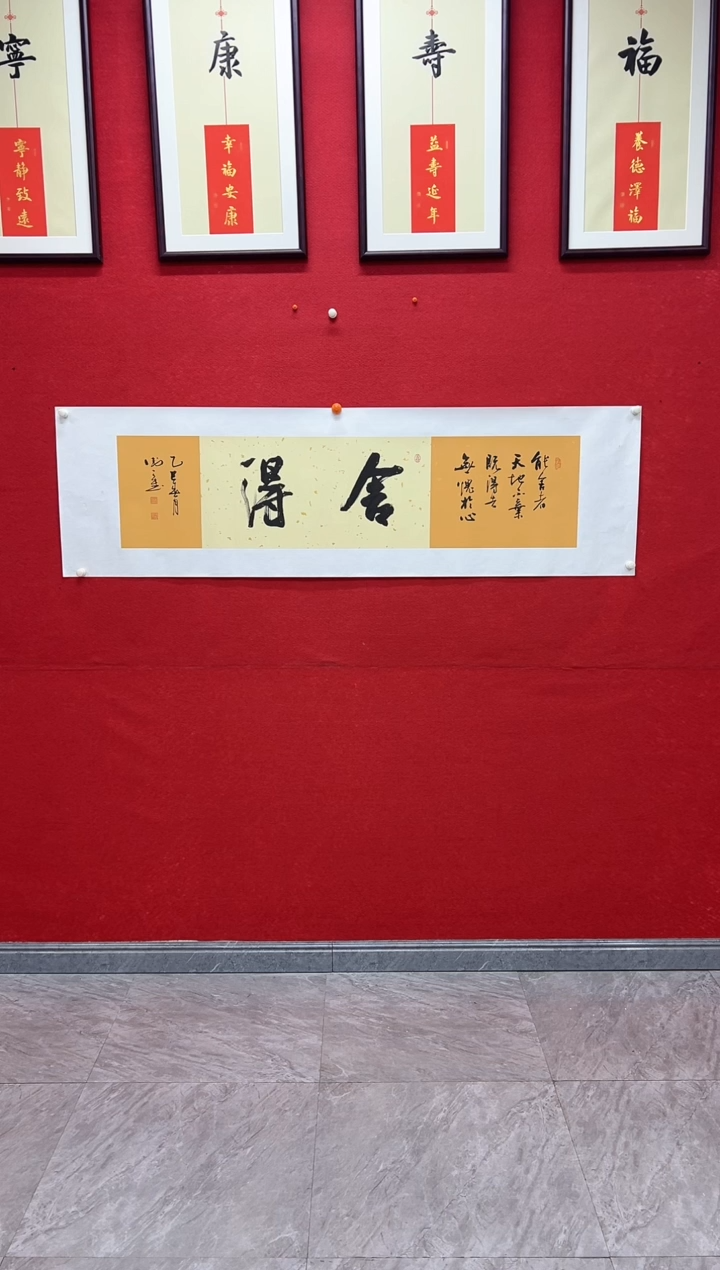 福
養德澤福
壽
益壽延年
康
幸福安康
寧
寧靜致遠
能舍者
天地不棄
既得
無愧於心
舍得
乙巳月